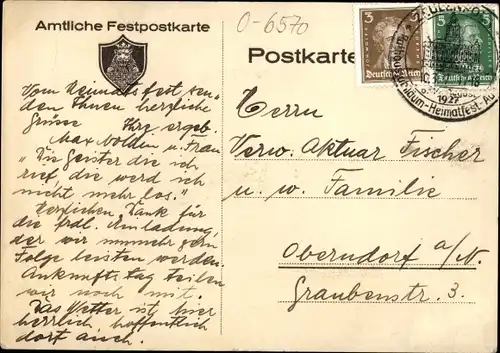 Amtliche Festpostkarte
0-6570
Postkarte
3
5
Deutsches Reich
Deutsches Reich
1927
Heimatfest
Vom Heimatfest sen-
den Ihnen herzliche
Grüsse Ihre ergeb.
Max u. Frau
"Die Geister die ich
rief, die werd ich
nicht mehr los."
Herzlichen Dank für
die frdl. Einladung,
der wir nunmehr gern
Folge leisten werden.
Ankunfts tag teilen
wir noch mit.
Das Wetter ist hier
herrlich, hoffentlich
dort auch.
Herrn
Verw. Aktuar Fischer
u. w. Familie
Oberndorf a/N.
Graubenstr. 3.